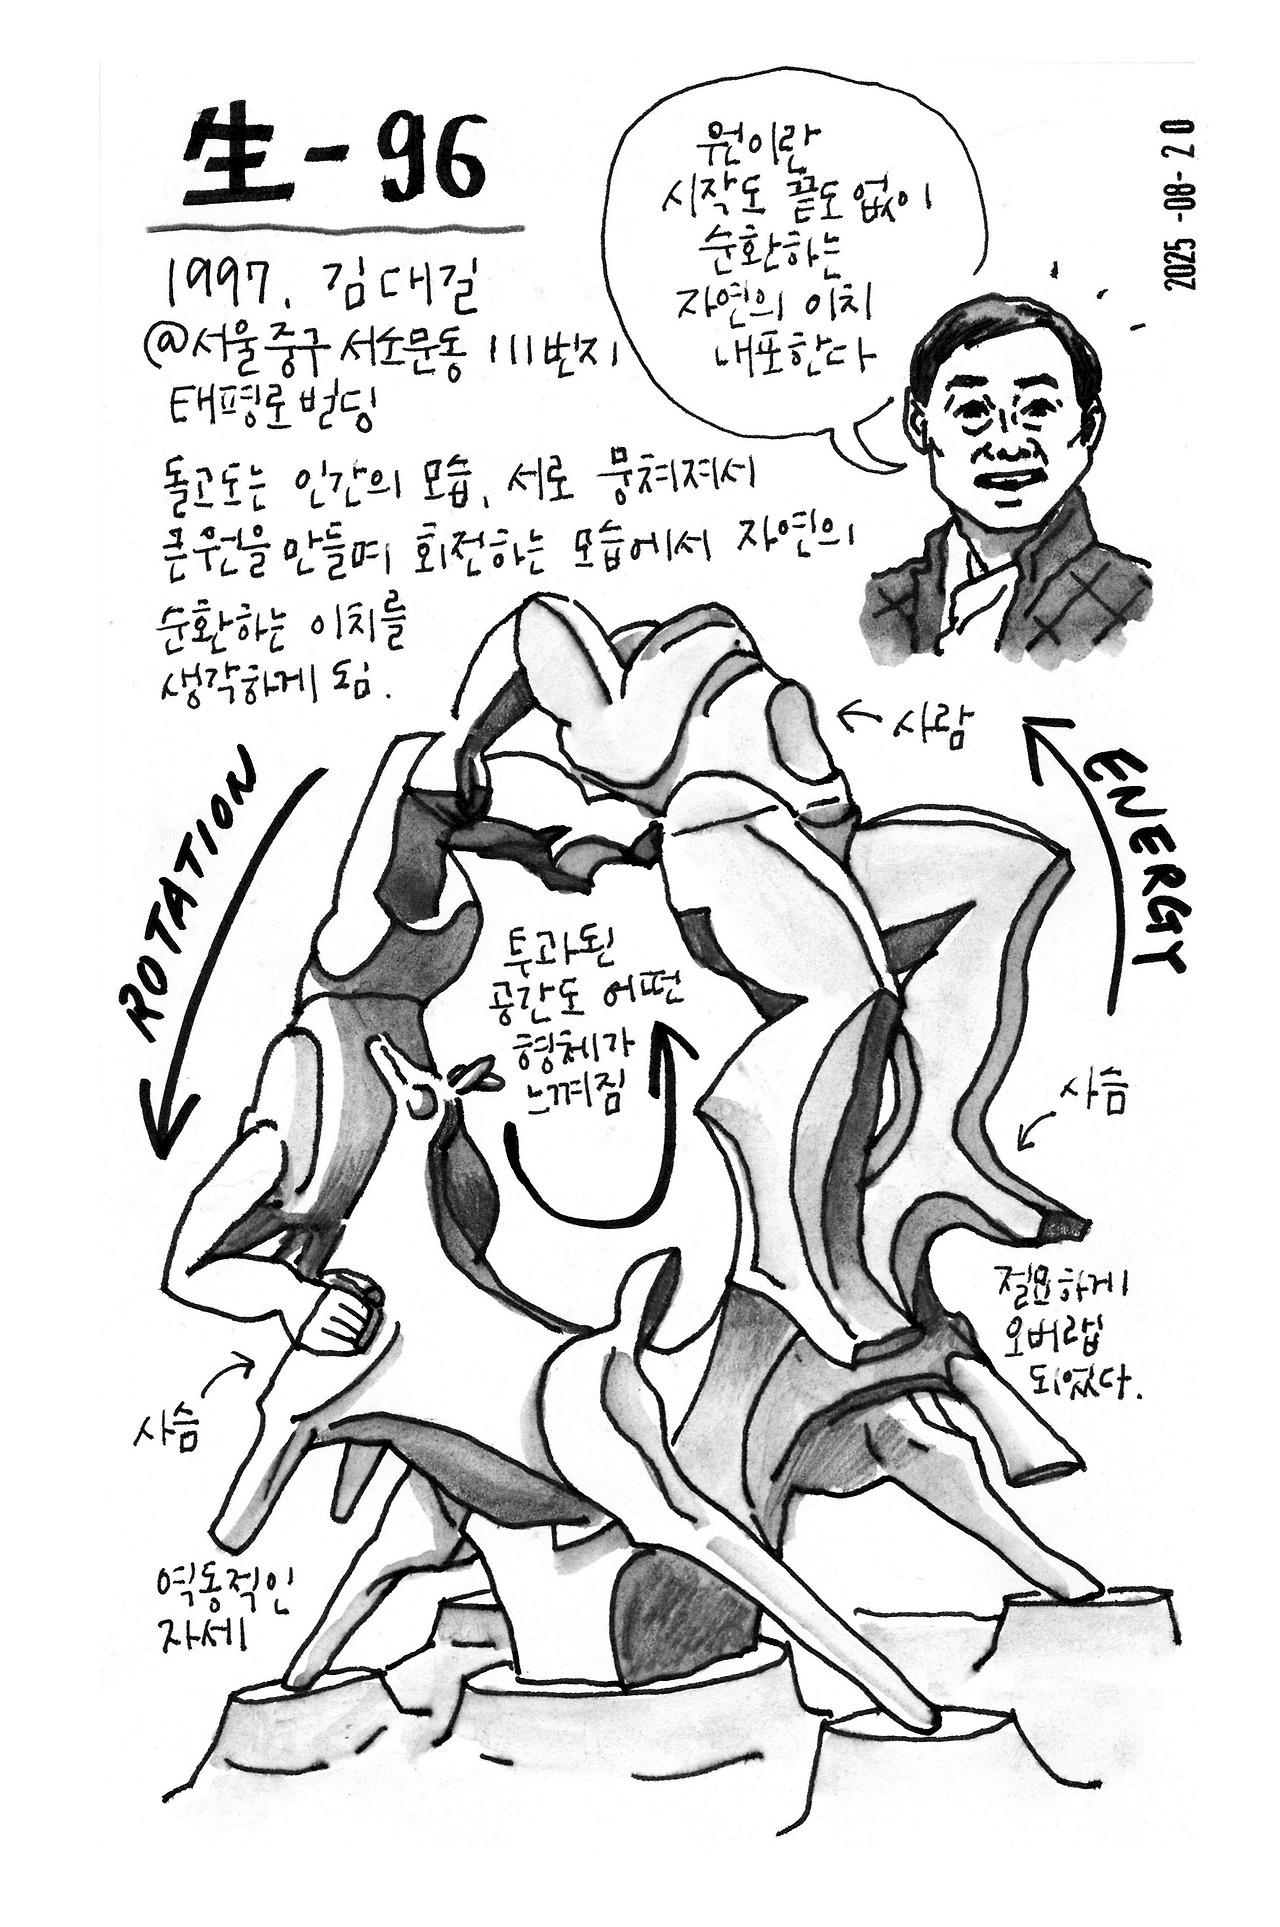 生-96
1997. 김대길
@서울 중구 서소문동 111번지
태평로빌딩
돌고도는 인간의 모습, 서로 뭉쳐져서
큰원을 만들며 회전하는 모습에서 자연의
순환하는 이치를
생각하게 됨.
원이란
시작도 끝도 없이
순환하는
자연의 이치
내포한다
2025-08-20
←사람
ROTATION
ENERGY
투과된
공간도 어떤
형체가
느껴짐
사슴
절묘하게
오버랩
되었다.
사슴
역동적인
자세